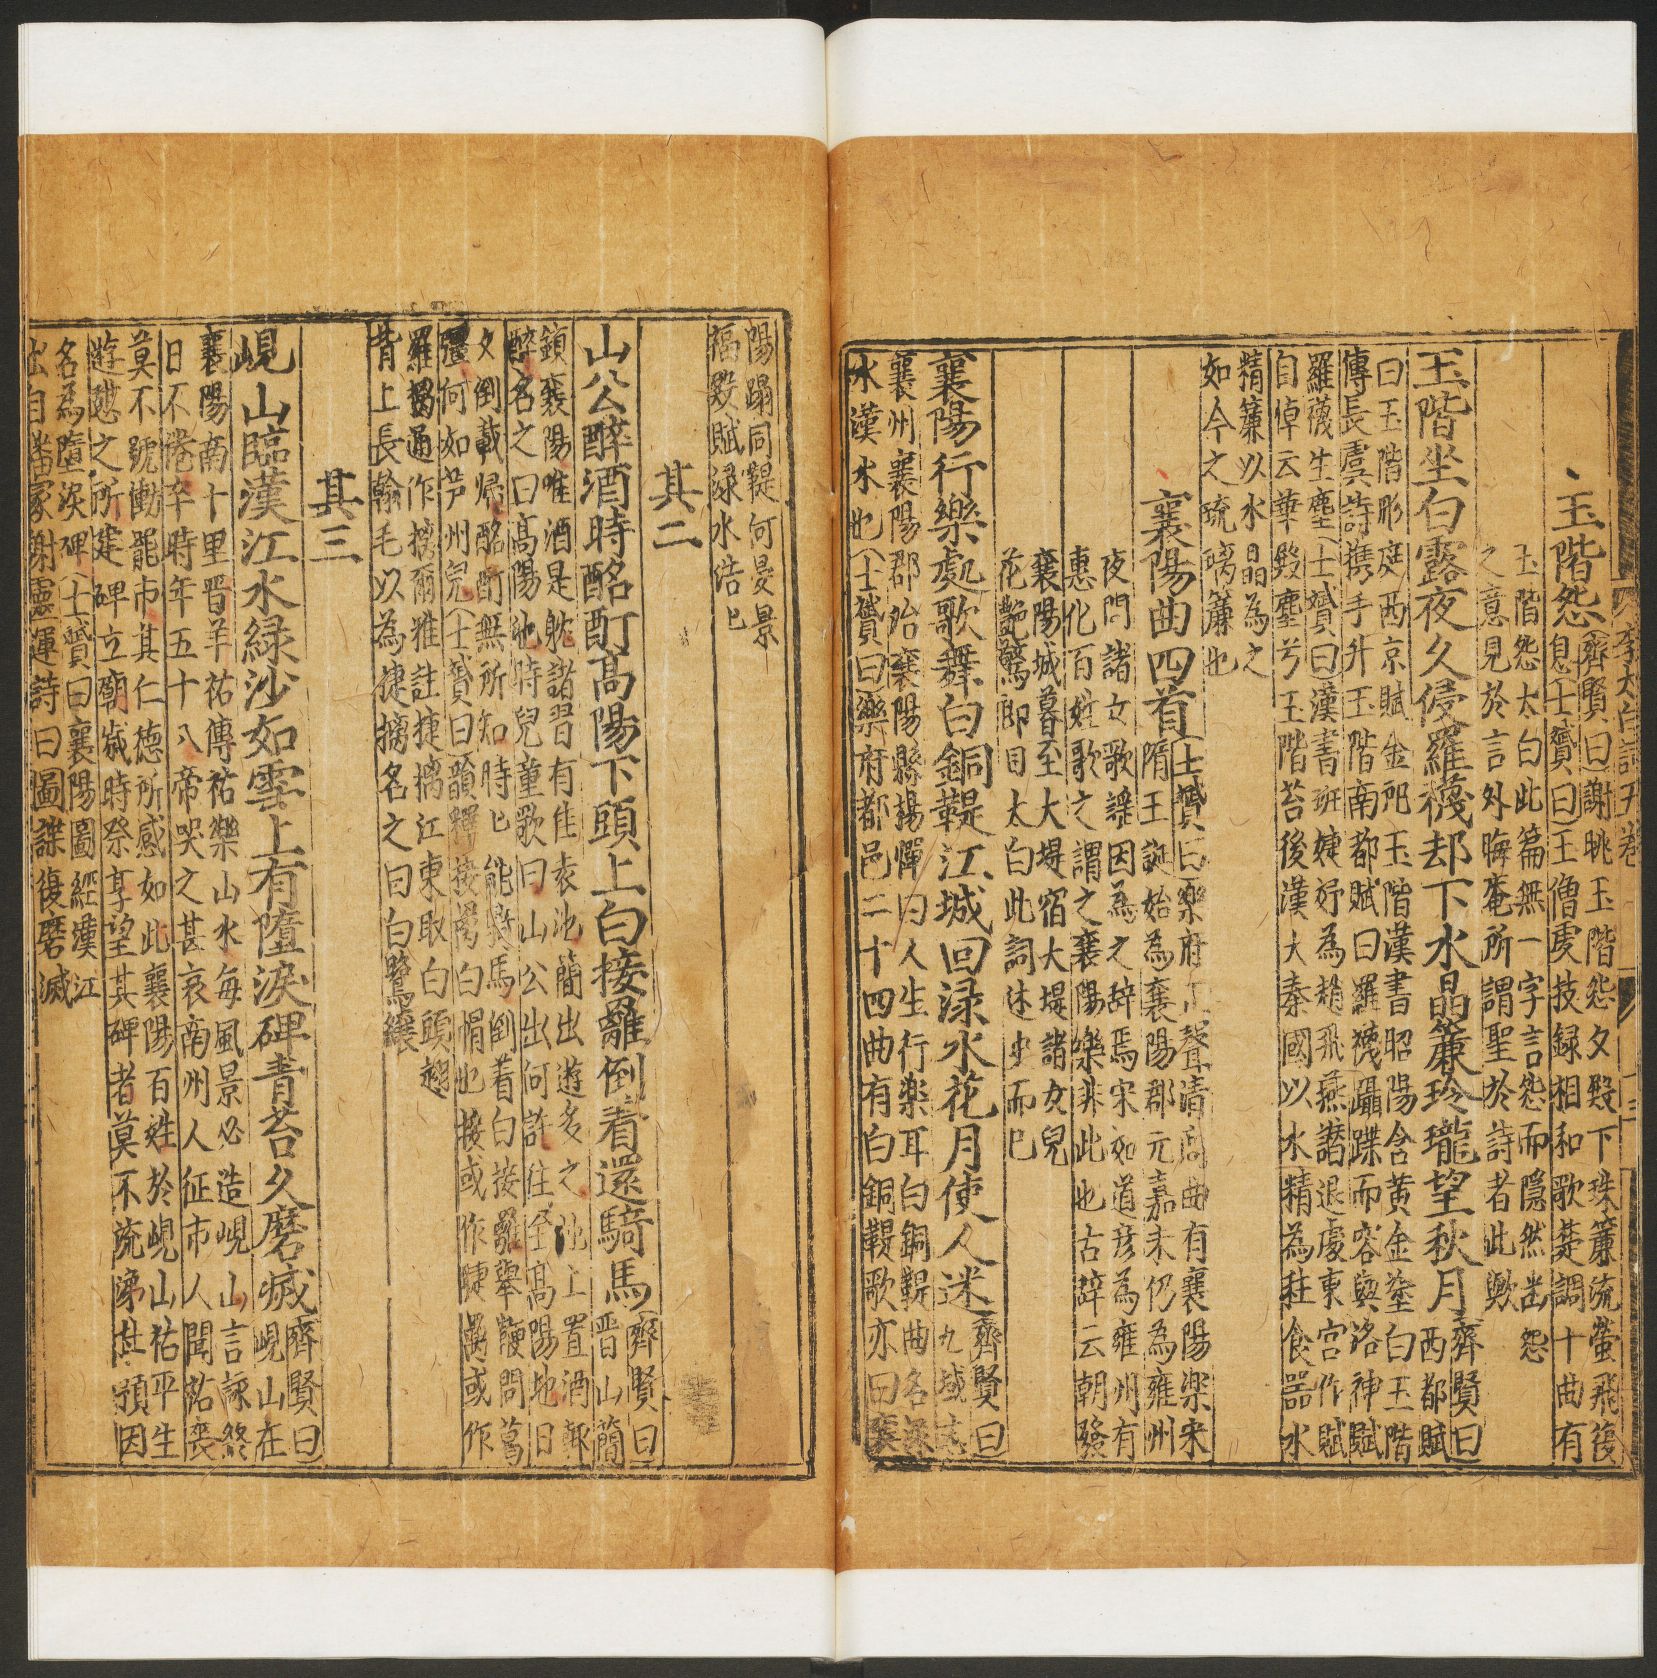 玉階怨
齊賢曰謝眺玉階怨夕殿下珠簾流螢飛復
息士贇曰王僧虔技録相和歌楚調十曲有
玉階怨太白此篇無一字言怨而隱然幽怨
之意見於言外晦菴所謂聖於詩者此歟
玉階生白露夜久侵羅襪却下水晶簾玲瓏望秋月
齊賢曰
西都賦
曰玉階彤庭西京賦金戺玉階漢書昭陽含黄金塗白玉階
傅長虞詩携手升玉階南都賦曰羅襪躡蹀而容與洛神賦
羅襪生塵士贇曰漢書班婕妤為趙飛燕譖退處東宮作賦
自悼云華殿塵兮玉階苔後漢大秦國以水精為柱食器水
精簾以水晶為之
如今之琉璃簾也
襄陽曲四首
士贇曰樂府正聲清商曲有襄陽楽宋
隋王誕始為襄陽郡元嘉末仍為雍州
夜聞諸女歌謡因為之辞焉宋如道彦為雍州有
惠化百姓歌之謂之襄陽樂非此也古辭云朝發
襄陽城暮至大堤宿大堤諸女兒
花艶驚郎目太白此詞述史而已
襄陽行樂處歌舞白銅鞮江城回渌水花月使人迷
齊賢曰
九域志
襄州襄陽郡治襄陽縣揚惲曰人生行楽耳白銅鞮曲名
水漢水也士贇曰樂府都邑二十四曲有白銅鞮歌亦曰襄
陽蹋同鞮何晏景
福殿賦渌水浩已
其二
山公醉酒時酩酊髙陽下頭上白接䍦倒着還騎馬
齊賢曰
晋山簡
鎮襄陽唯酒是躭諸習有佳園池簡出遊多之池上置酒輙
醉名之曰髙陽池時兒童歌曰山公出何許往至髙陽池日
夕倒載歸酩酊無所知時已能騎馬倒着白接䍦舉鞭問葛
彊何如并州兒士贇曰韻釋接䍦白帽也接或作䏶䍦或作
羅揭通作摛爾雅註捷摛江東取白頭翅
背上長翰毛以為捷摛名之曰白鷺縗
其三
峴山臨漢江水緑沙如雪上有墮淚碑青苔久磨㓕
齊賢曰
峴山在
襄陽南十里晋羊祐傳祐樂山水每風景必造峴山言詠終
日不倦卒時年五十八帝哭之甚哀南州人征市人聞祐喪
莫不號慟罷市其仁徳所感如此襄陽百姓於峴山祐平生
遊憩之所建碑立廟歳時祭享望其碑者莫不流涕杜預因
名為墮淚碑士贇曰襄陽圖經漢江
出自嶓冢謝靈運詩曰圖諜復磨滅